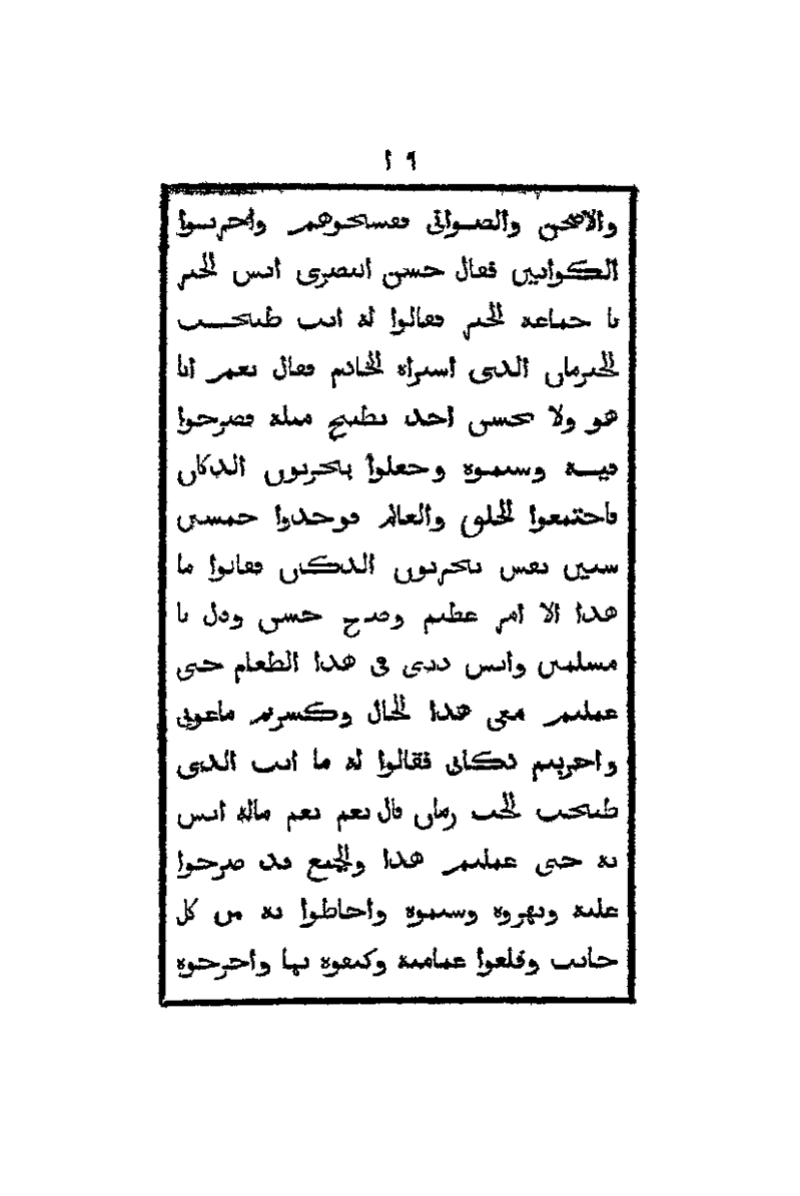 ١٩
والاصحن والصوانى فمسحوهم واخربوا
الكوانين فقال حسن البصرى ايس الخبر
يا جماعة الخير فقالوا له انت طبخت
الحبرمان الذى اشتراه الخادم فقال نعم انا
هو ولا يحسن احد يطبخ مثله فصرخوا
فيه وشتموه وجعلوا يخربون الدكان
فاجتمعوا الخلق والعالم فوجدوا خمسين
ستين نفس يخربون الدكان فقالوا ما
هذا الا امر عظيم وصاح حسن وقال يا
مسلمين وايس ذنبى فى هذا الطعام حتى
عملتم معى هذا الحال وكسرتم ماعونى
واخربتم دكانى فقالوا له ما انت الذى
طبخت الحب رمان قال نعم نعم ماله ايس
به حتى عملتم هذا والجميع قد صرخوا
عليه ونهروه وشتموه واحاطوا به من كل
جانب وقلعوا عمامته وكتفوه بها واخرجوه